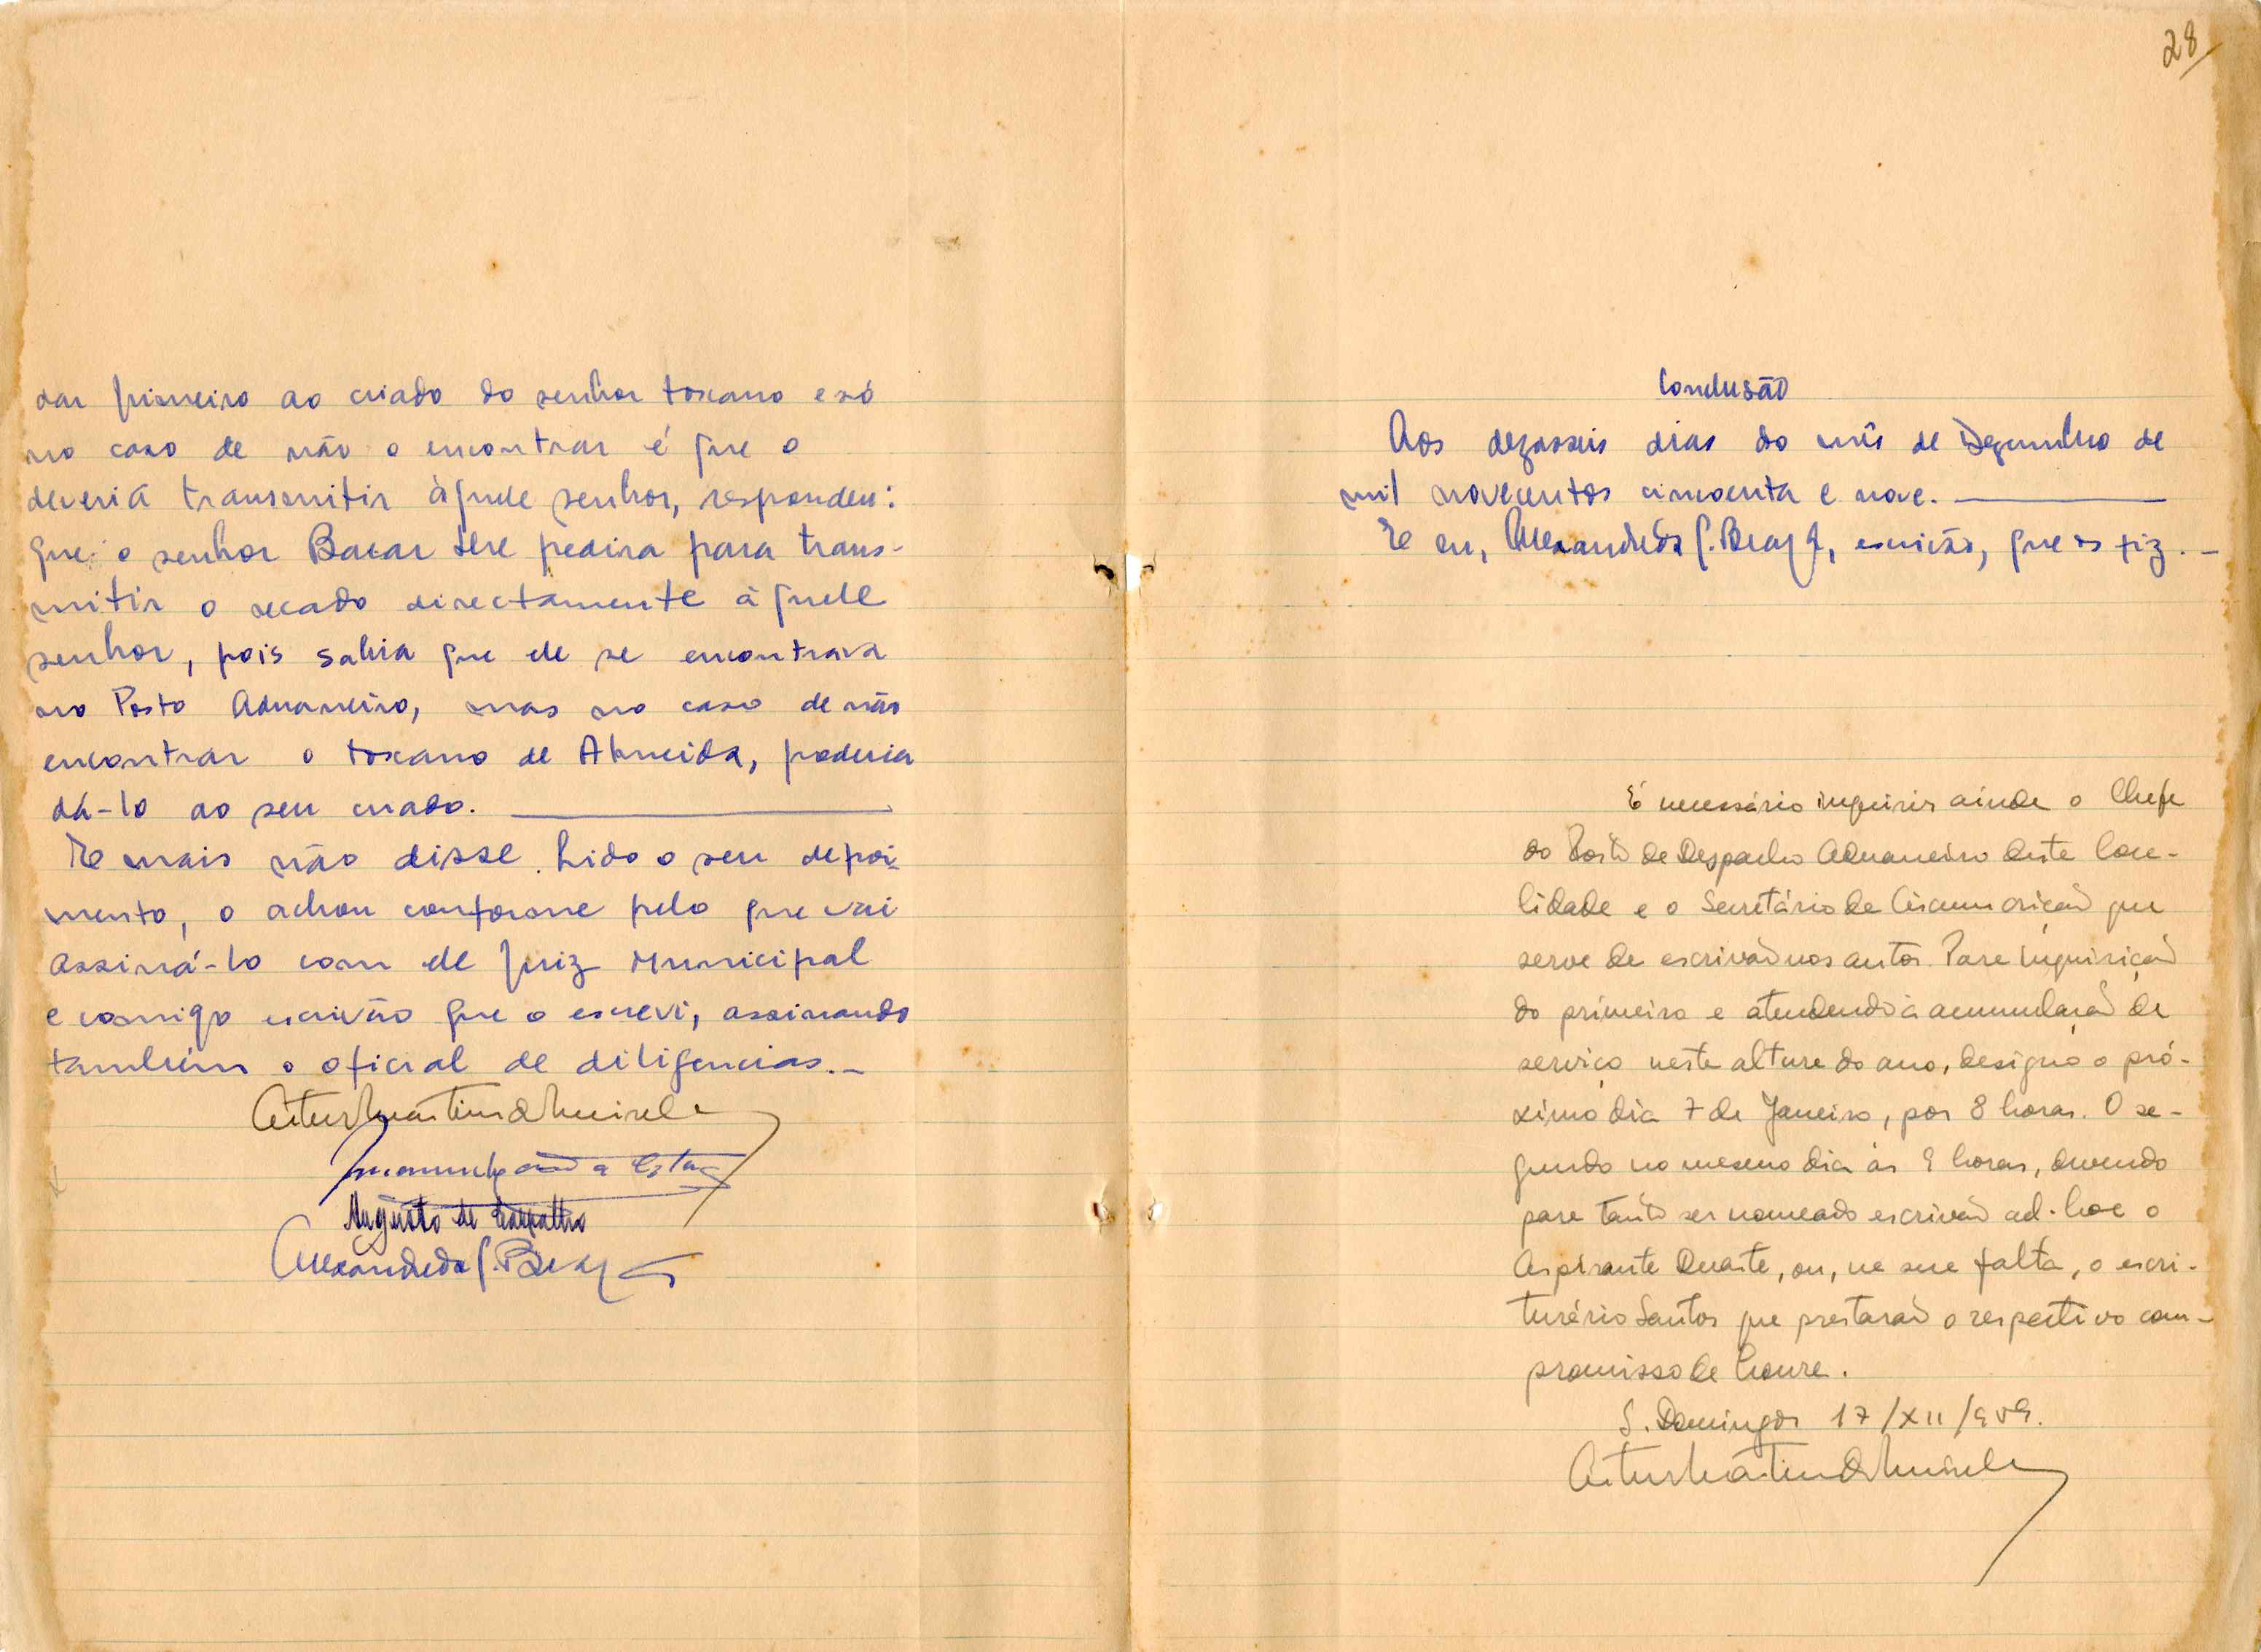 dar primeiro ao criado do senhor Toscano e só
no caso de não o encontrar é que o
deveria transmitir àquele senhor, respondeu:
que o senhor Bacar pedira para trans-
mitir o recado directamente àquele
senhor, pois sabia que ele se encontrava
no Posto Aduaneiro, mas no caso de não
encontrar o Toscano de Almeida, poderia
dá-lo ao seu criado.
E mais não disse. Lido o seu depoi-
mento, o achou conforme pelo que vai
assiná-lo com ele Juiz Municipal
e comigo escrivão que o escrevi, assinando
também o oficial de diligencias.-
Artur Martins de Meireles
Augusto de Carvalho
28
Conclusão
Aos dezasseis dias do mês de Dezembro de
mil novecentos cincoenta e nove.
E eu, escrivão, que os fiz.-
É necessário inquirir ainda o Chefe
do Posto de Despacho Aduaneiro desta loca-
lidade e o Secretário de Circunscrição que
serve de escrivão nos autos. Para inquirição
do primeiro e atendendo à acumulação de
serviço nesta altura do ano, designo o pró-
ximo dia 7 de Janeiro, por 8 horas. O se-
gundo no mesmo dia às 9 horas, devendo
para tanto ser nomeado escrivão ad-hoc o
Aspirante Duarte, ou, na sua falta, o escri-
turário Santos que prestarão o respectivo com-
promisso de honra.
S. Domingos 17/XII/959.
Artur Martins de Meireles